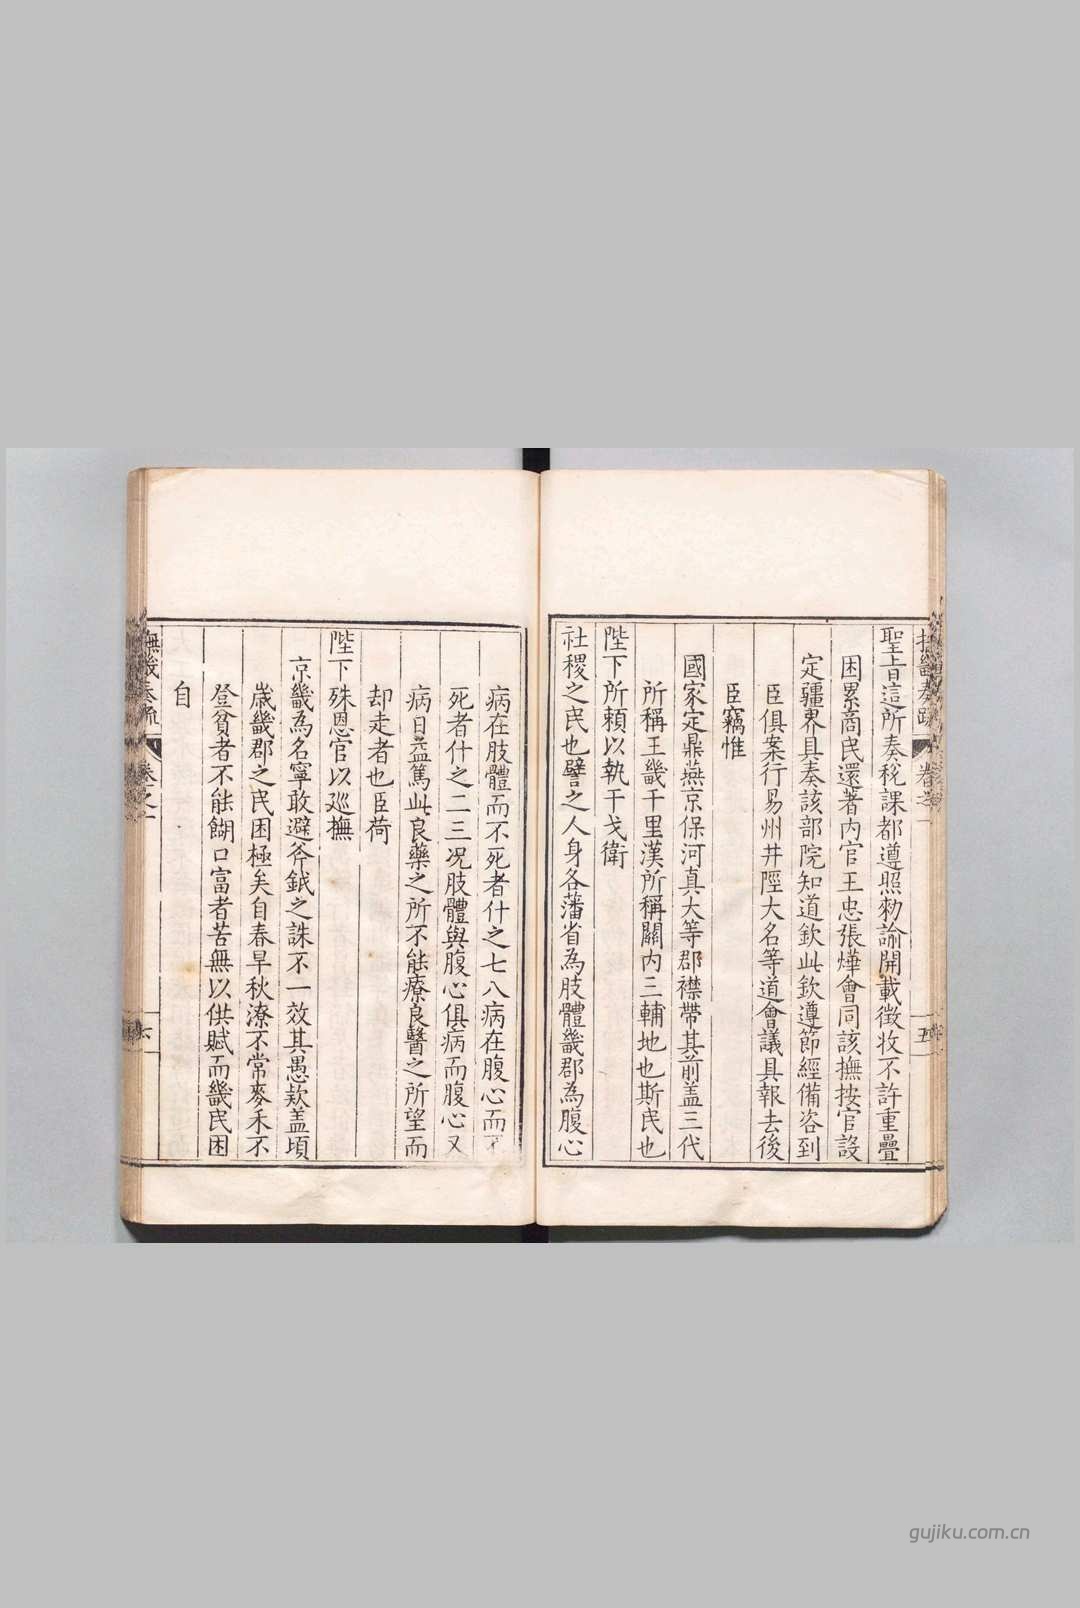 撫畿奏疏 卷之一 五
聖旨這所奏稅課都遵照勑諭開載徵收不許重疊
困累商民還著内官王忠張燁會同該撫按官設
定疆界具奏該部院知道欽此欽遵節經備咨到
臣俱案行易州井陘大名等道會議具報去後
臣竊惟
國家定鼎燕京保河真大等郡襟帶其前盖三代
所稱王畿千里漢所稱關内三輔地也斯民也
陛下所頼以執干戈衛
社稷之民也譬之人身各藩省為肢體畿郡為腹心
病在肢體而不死者什之七八病在腹心而不
死者什之二三况肢體與腹心俱病而腹心又
病日益篤此良藥之所不能療良醫之所望而
却走者也臣荷
陛下殊恩官以巡撫
京畿為名寧敢避斧鉞之誅不一效其愚欵盖頃
歲畿郡之民困極矣自春旱秋潦不常麥禾不
登貧者不能餬口富者苦無以供賦而畿民困
自
撫畿奏疏 卷之一 六
gujiku.com.cn